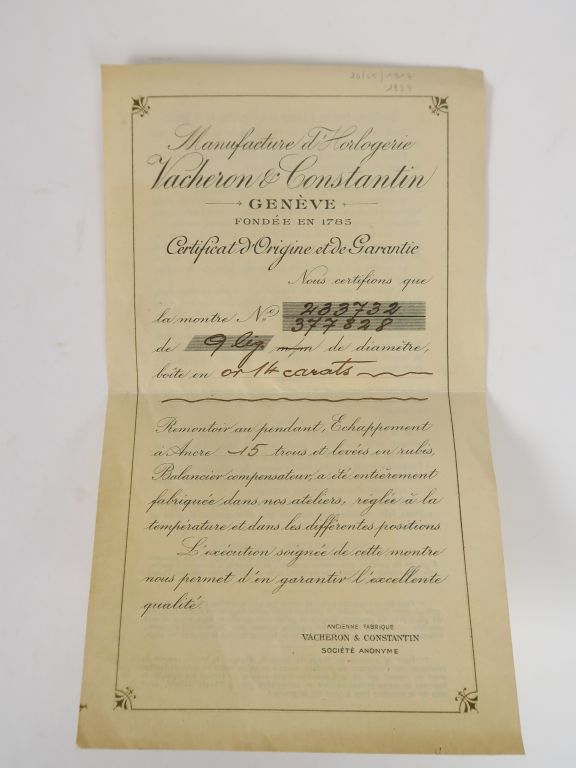 Manufacture d'Horlogerie
Vacheron & Constantin
GENÈVE
FONDÉE EN 1785
Certificat d'Origine et de Garantie
Nous certifions que
la montre Nos 233732
377828
de 9 lig. m/m de diamètre,
boîte en or 14 carats
Remontoir au pendant, Echappement
à Ancre 15 trous et levées en rubis,
Balancier compensateur, a été entièrement
fabriquée dans nos ateliers, réglée à la
température et dans les différentes positions
L'exécution soignée de cette montre
nous permet d'en garantir l'excellente
qualité.
ANCIENNE FABRIQUE
VACHERON & CONSTANTIN
SOCIÉTÉ ANONYME